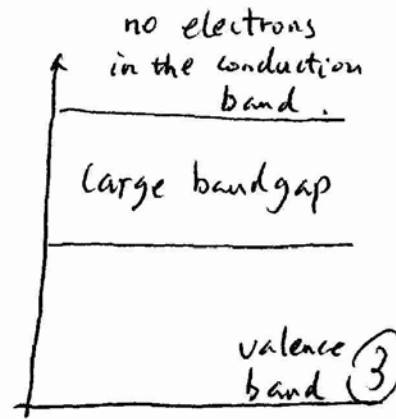 no electrons
in the conduction
band.
large bandgap
valence
band 3